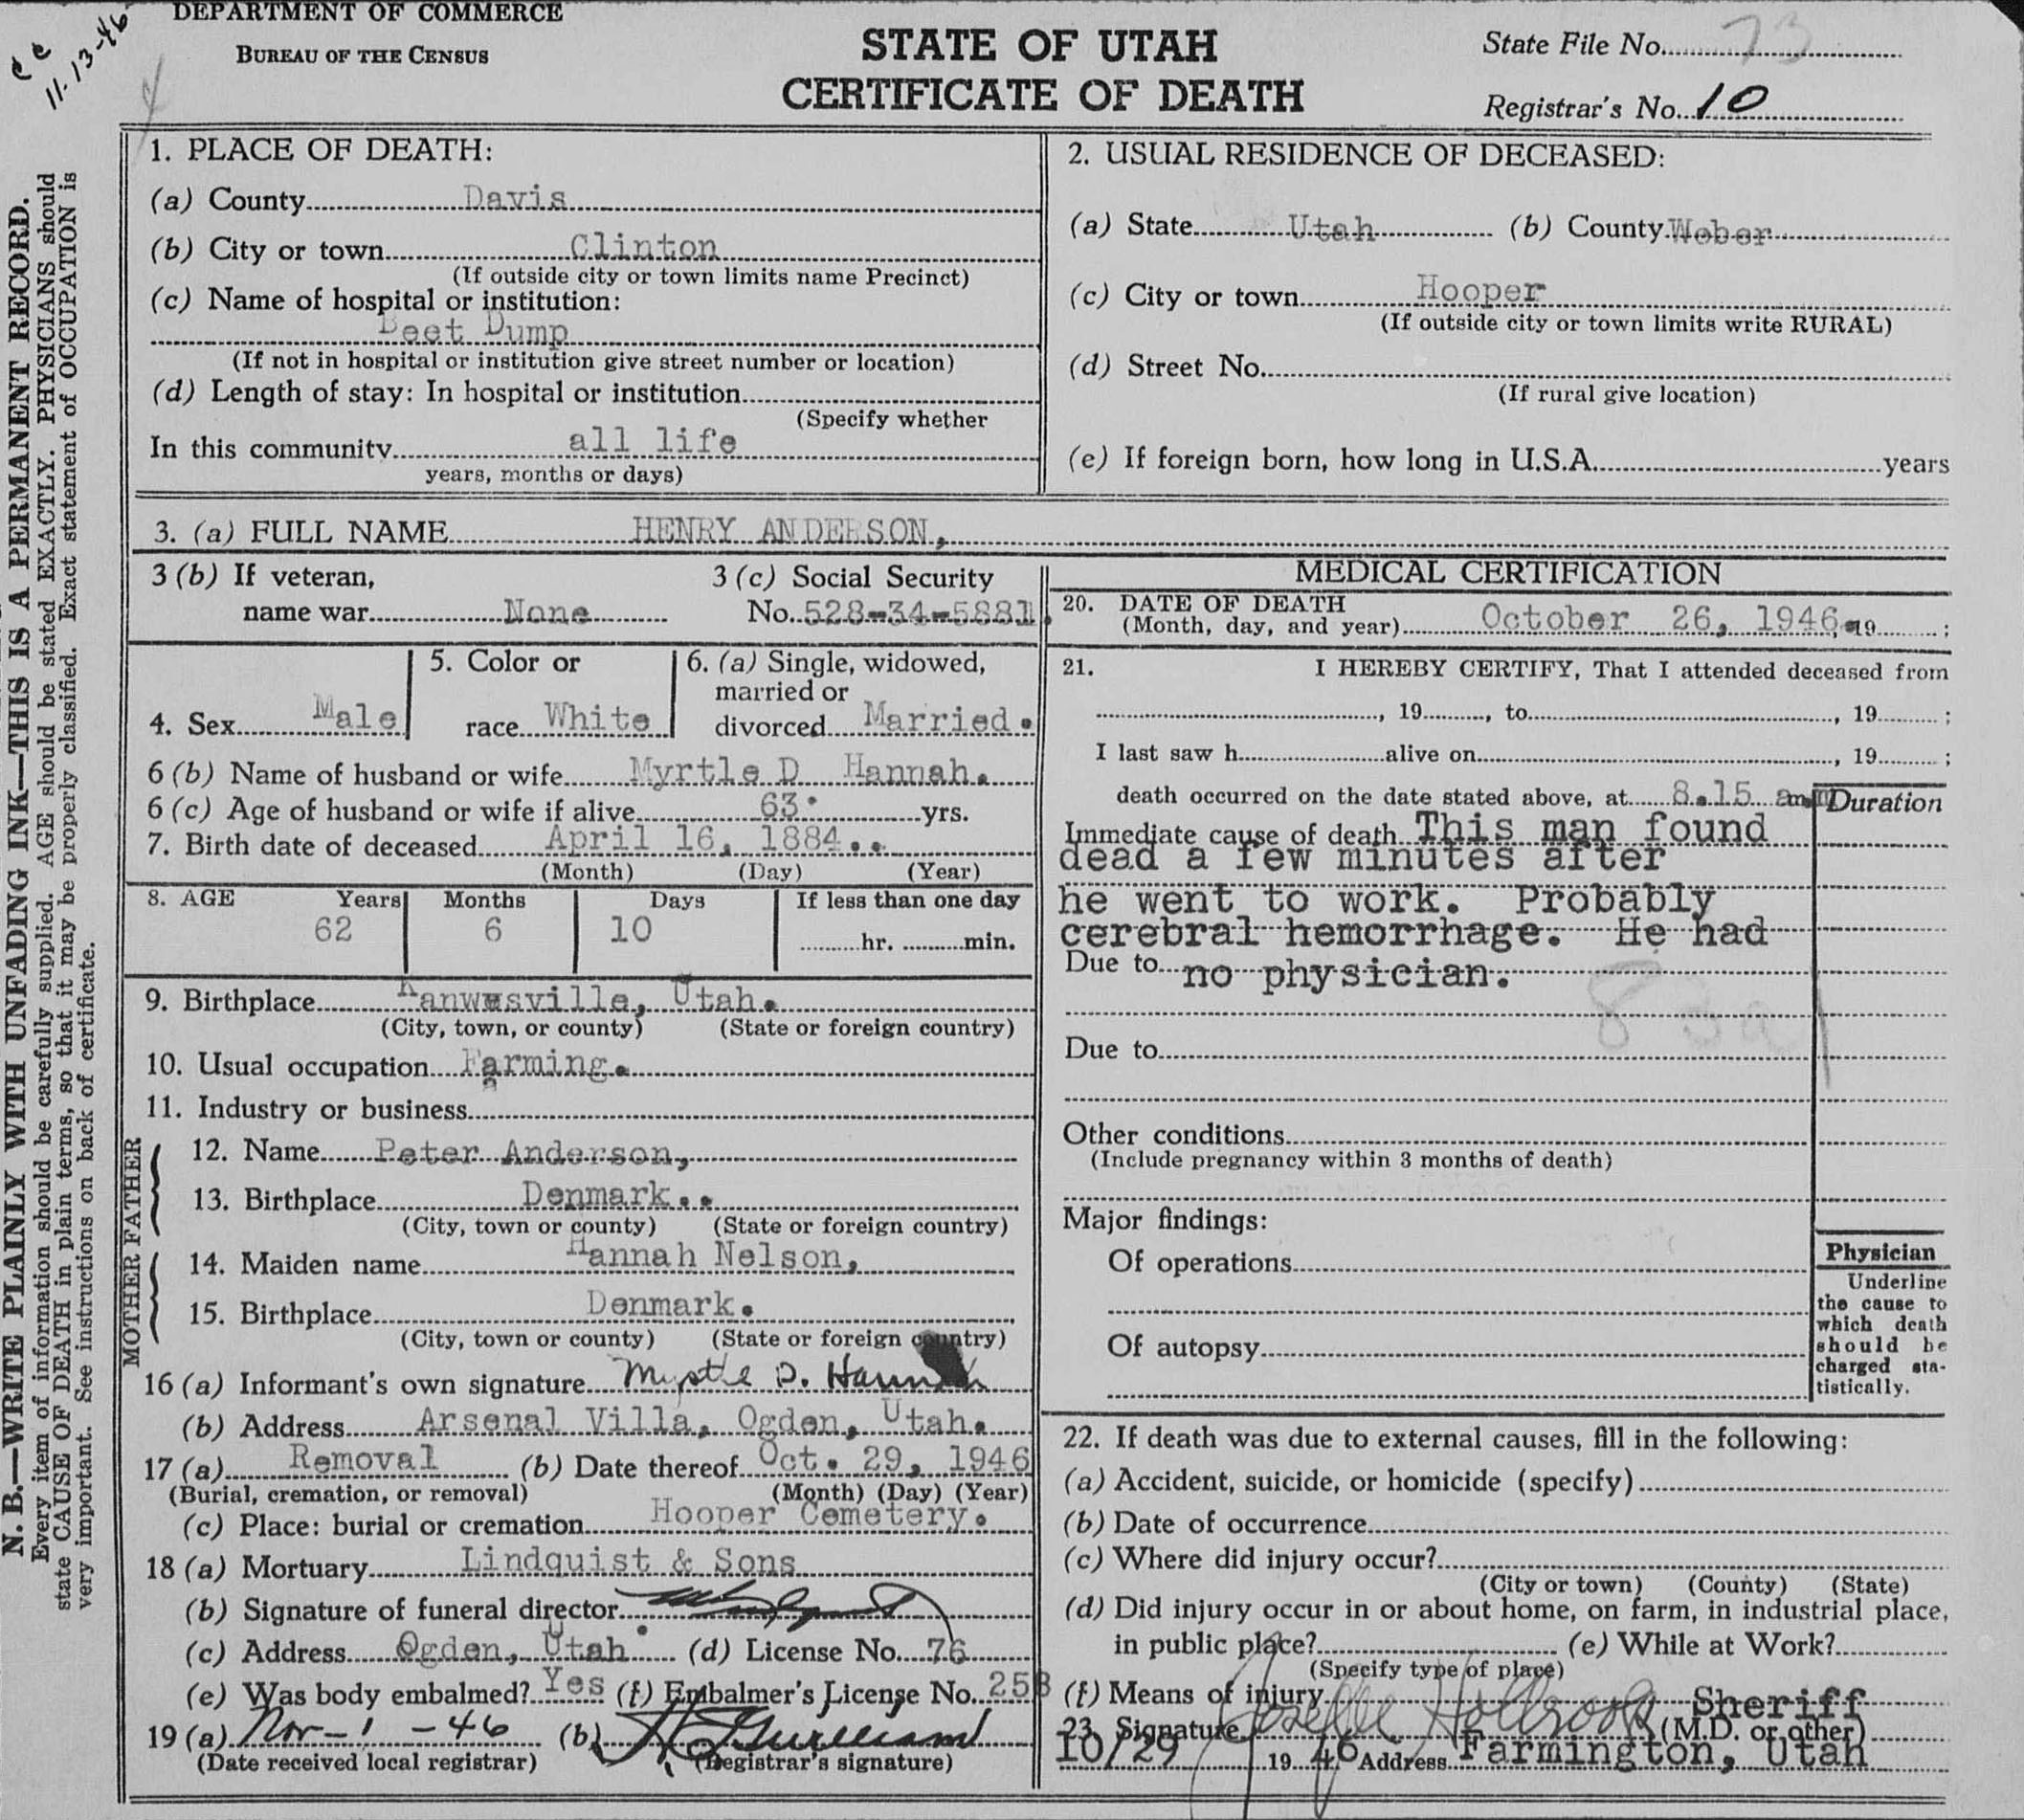 DEPARTMENT OF COMMERCE
BUREAU OF THE CENSUS
11-13-46
STATE OF UTAH
CERTIFICATE OF DEATH
State File No. 73
Registrar's No. 10
N. B.—WRITE PLAINLY WITH UNFADING INK—THIS IS A PERMANENT RECORD.
Every item of information should be carefully supplied. AGE should be stated EXACTLY. PHYSICIANS should
state CAUSE OF DEATH in plain terms, so that it may be properly classified. Exact statement of OCCUPATION is
very important. See instructions on back of certificate.
1. PLACE OF DEATH:
(a) County Davis
(b) City or town Clinton
(If outside city or town limits name Precinct)
(c) Name of hospital or institution:
Beet Dump
(If not in hospital or institution give street number or location)
(d) Length of stay: In hospital or institution
(Specify whether
In this community all life
years, months or days)
2. USUAL RESIDENCE OF DECEASED:
(a) State Utah (b) County Weber
(c) City or town Hooper
(If outside city or town limits write RURAL)
(d) Street No.
(If rural give location)
(e) If foreign born, how long in U.S.A. years
3. (a) FULL NAME HENRY ANDERSON,
3 (b) If veteran, 3 (c) Social Security
name war None No. 528-34-5881.
4. Sex Male
5. Color or
race White
6. (a) Single, widowed,
married or
divorced Married.
6 (b) Name of husband or wife Myrtle D Hannah.
6 (c) Age of husband or wife if alive 63. yrs.
7. Birth date of deceased April 16, 1884..
(Month) (Day) (Year)
8. AGE Years Months Days If less than one day
62 6 10 hr. min.
9. Birthplace Kanwesville, Utah.
(City, town, or county) (State or foreign country)
10. Usual occupation Farming.
11. Industry or business
FATHER
12. Name Peter Anderson,
13. Birthplace Denmark..
(City, town or county) (State or foreign country)
MOTHER
14. Maiden name Hannah Nelson,
15. Birthplace Denmark.
(City, town or county) (State or foreign country)
16 (a) Informant's own signature Myrtle D. Hannah
(b) Address Arsenal Villa, Ogden, Utah.
17 (a) Removal (b) Date thereof Oct. 29, 1946
(Burial, cremation, or removal) (Month) (Day) (Year)
(c) Place: burial or cremation Hooper Cemetery.
18 (a) Mortuary Lindquist & Sons
(b) Signature of funeral director
(c) Address Ogden, Utah. (d) License No. 76
(e) Was body embalmed? Yes (f) Embalmer's License No. 258
19 (a) Nov-1-46 (b)
(Date received local registrar) (Registrar's signature)
MEDICAL CERTIFICATION
20. DATE OF DEATH
(Month, day, and year) October 26, 1946. 19 ;
21. I HEREBY CERTIFY, That I attended deceased from
, 19 , to , 19 ;
I last saw h alive on , 19 ;
death occurred on the date stated above, at 8.15 am.m
Duration
Immediate cause of death This man found
dead a few minutes after
he went to work. Probably
cerebral hemorrhage. He had
Due to no physician.
83a
Due to
Other conditions
(Include pregnancy within 3 months of death)
Major findings:
Of operations
Of autopsy
Physician
Underline
the cause to
which death
should be
charged sta-
tistically.
22. If death was due to external causes, fill in the following:
(a) Accident, suicide, or homicide (specify)
(b) Date of occurrence
(c) Where did injury occur?
(City or town) (County) (State)
(d) Did injury occur in or about home, on farm, in industrial place,
in public place? (e) While at Work?
(Specify type of place)
(f) Means of injury
23. Signature Holbrook Sheriff
(M.D. or other)
10/29 19 46 Address Farmington, Utah